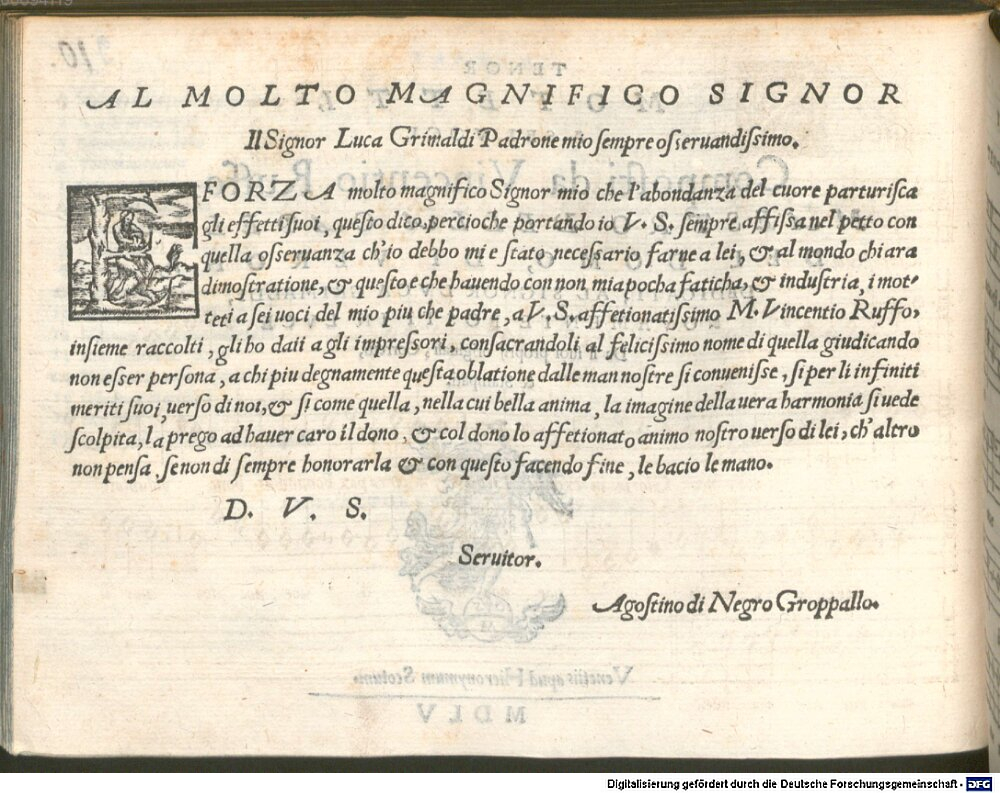 AL MOLTO MAGNIFICO SIGNOR
Il Signor Luca Grimaldi Padrone mio sempre osseruandissimo.
E FORZA molto magnifico Signor mio che l'abondanza del cuore parturisca
gli effetti suoi, questo dico, percioche portando io V. S. sempre affissa nel petto con
quella osseruanza ch'io debbo mi e stato necessario farne a lei, & al mondo chiara
dimostratione, & questo e che hauendo con non mia pocha faticha, & industria, i mot-
teti a sei uoci del mio piu che padre, a V. S. affetionatissimo M. Vincentio Ruffo,
insieme raccolti, gli ho daii a gli impressori, consacrandoli al felicissimo nome di quella giudicando
non esser persona, a chi piu degnamente questa oblatione dalle man nostre si conuenisse, si per li infiniti
meriti suoi, uerso di noi, & si come quella, nella cui bella anima, la imagine della uera harmonia si uede
scolpita, la prego ad hauer caro il dono, & col dono lo affetionato animo nostro uerso di lei, ch'altro
non pensa, se non di sempre honorarla & con questo facendo fine, le bacio le mano.
D. V. S.
Seruitor.
Agostino di Negro Groppallo.
Venetiis apud Hieronymum Scotum.
MDLV
Digitalisierung gefördert durch die Deutsche Forschungsgemeinschaft - DFG